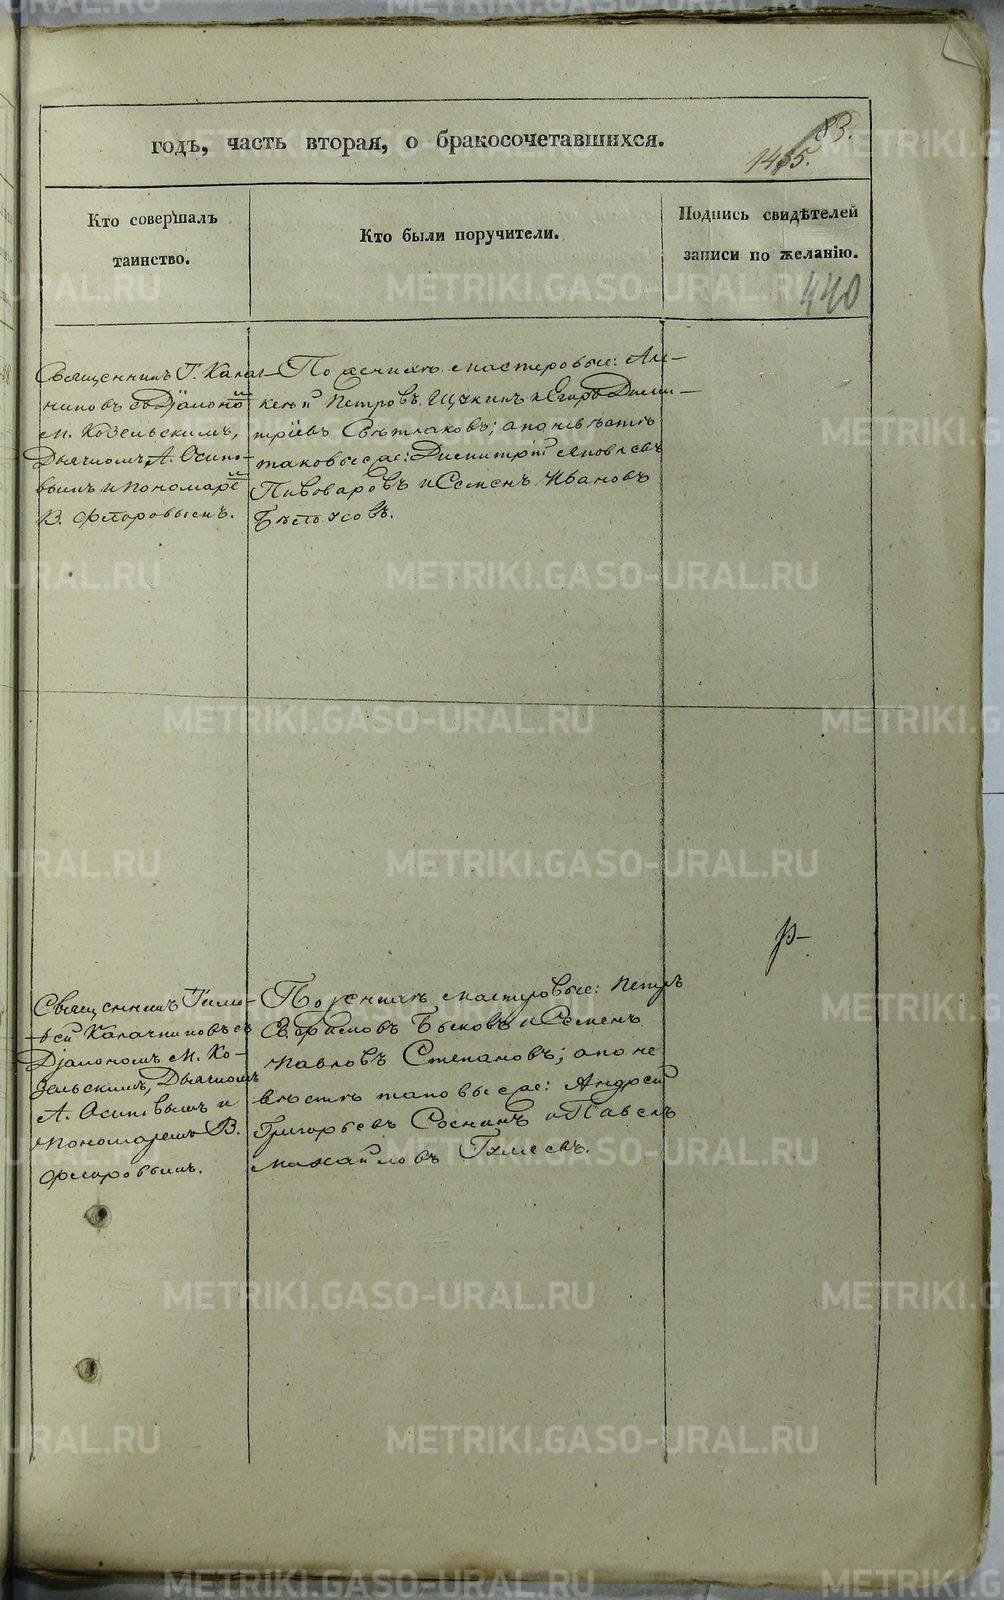 годъ, часть вторая, о бракосочетавшихся.
83.
1485.
Кто совершалъ
таинство.
Кто были поручители.
Подпись свидѣтелей
записи по желанію.
440
Священникъ Г. Калач-
никовъ съ Діакономъ
М. Козельскимъ,
Дьячкомъ А. Осипо-
вымъ и пономаремъ
В. Флоровымъ.
По женихѣ мастеровые:
Петровъ Щукинъ и Егоръ Дими-
тріевъ Свѣтлаковъ; а по невѣстѣ
таковые же: Димитрій Яковлевъ
Пивоваровъ и Семенъ Ивановъ
Бѣлоусовъ.
Священникъ Тимо-
ѳей Калачниковъ съ
Діакономъ М. Ко-
зельскимъ, Дьячкомъ
А. Осиповымъ и
Пономаремъ В.
Флоровымъ.
По женихѣ мастеровые: Петръ
Быковъ и Семенъ
Павловъ Степановъ; а по не-
вѣстѣ таковые же: Андрей
Григорьевъ Соснинъ и Павелъ
Михайловъ
METRIKI.GASO-URAL.RU